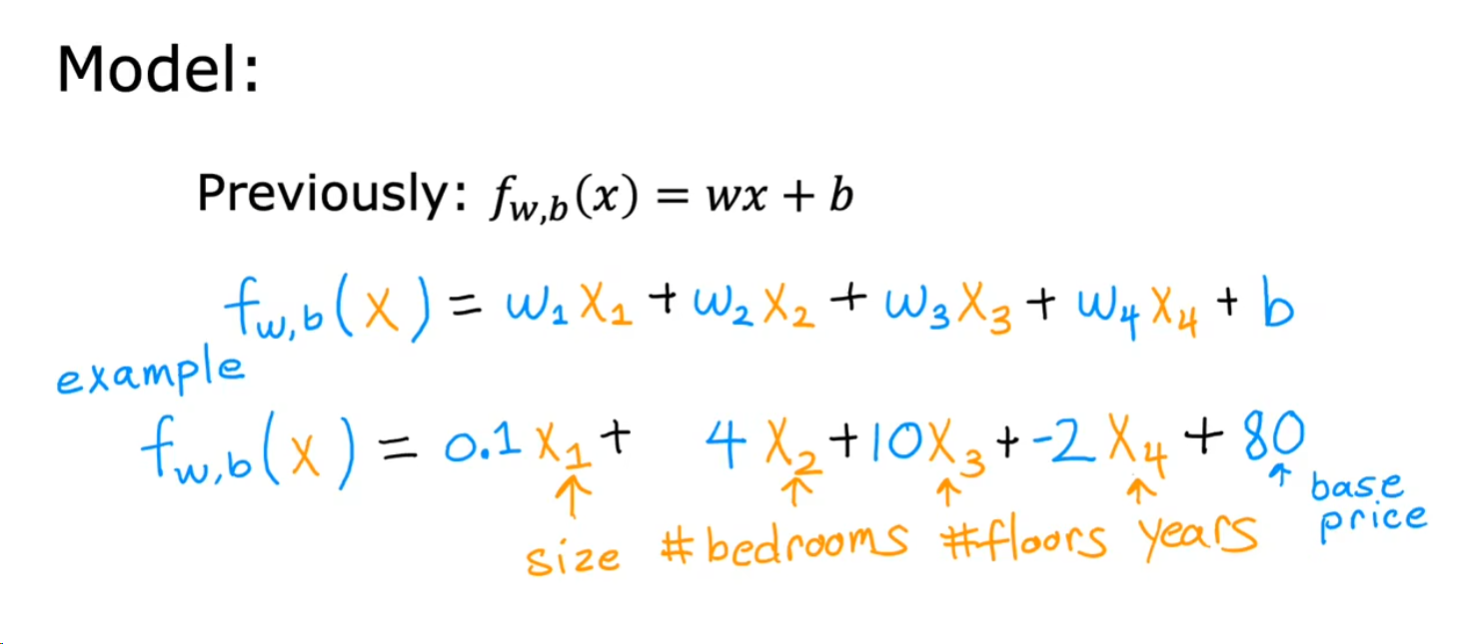 Model:
Previously: f_{w,b}(x) = wx + b
f_{w,b}(x) = w₁x₁ + w₂x₂ + w₃x₃ + w₄x₄ + b
example
f_{w,b}(x) = 0.1x₁ + 4x₂ + 10x₃ + -2x₄ + 80
↑ ↑ ↑ ↑ ↑
size #bedrooms #floors years base price